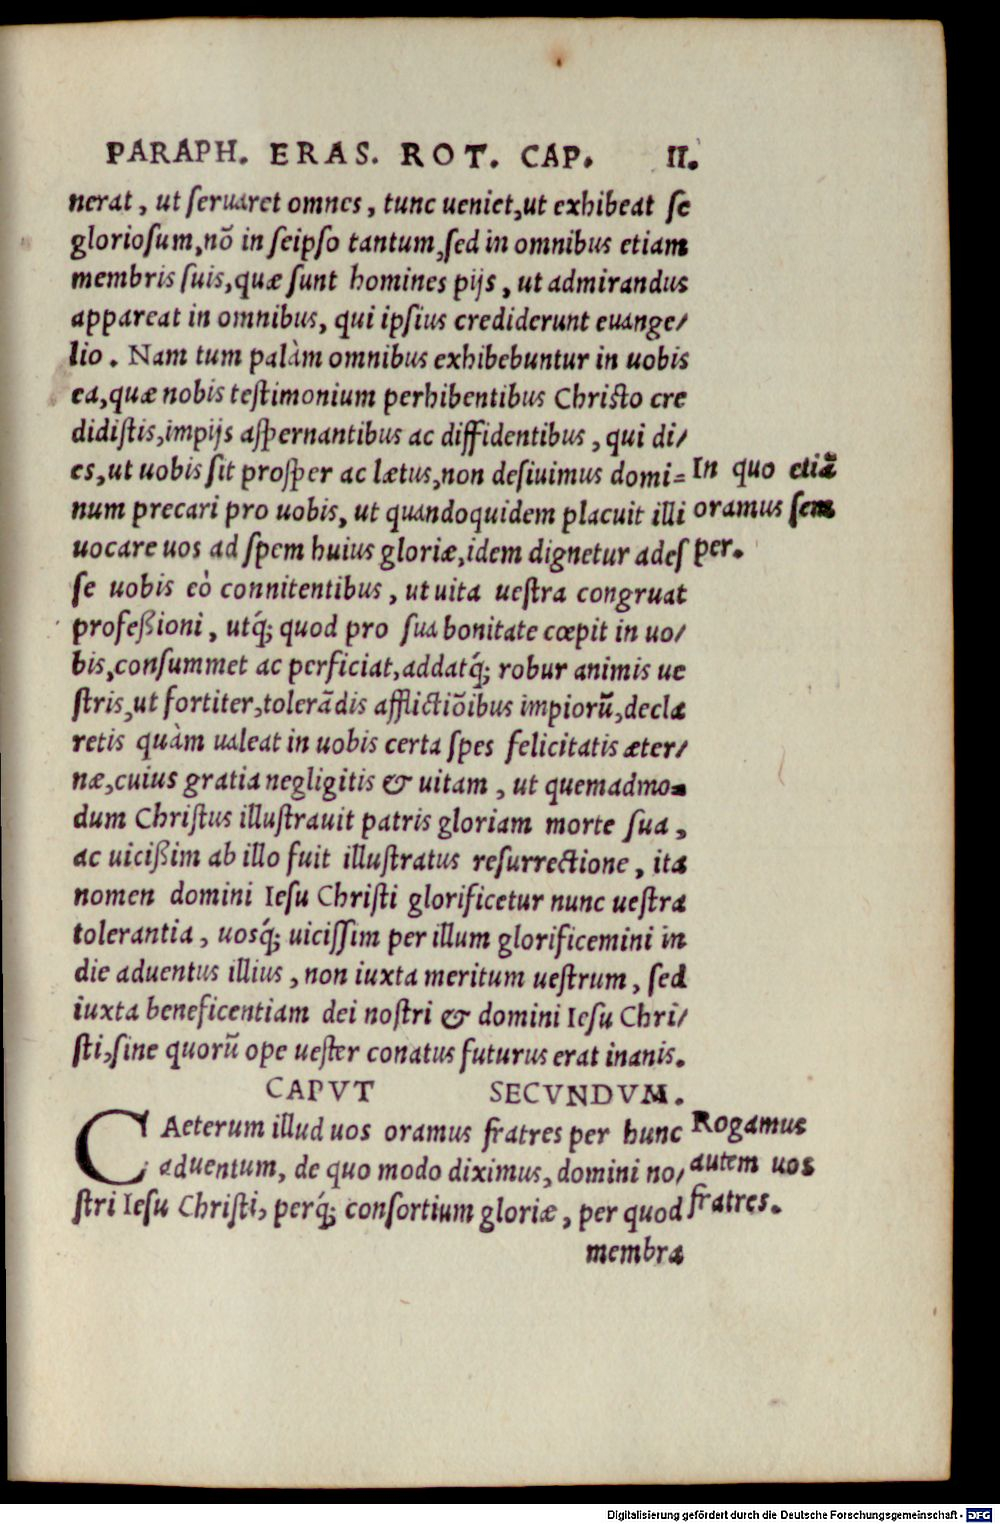 PARAPH. ERAS. ROT. CAP. II.
nerat, ut ſeruaret omnes, tunc ueniet, ut exhibeat ſe
glorioſum, nõ in ſeipſo tantum, ſed in omnibus etiam
membris ſuis, quæ ſunt homines pijs, ut admirandus
appareat in omnibus, qui ipſius crediderunt euange/
lio. Nam tum palàm omnibus exhibebuntur in uobis
ea, quæ nobis teſtimonium perhibentibus Chriſto cre
didiſtis, impijs aſpernantibus ac diffidentibus, qui di/
es, ut uobis ſit proſper ac lætus, non deſiuimus domi=
num precari pro uobis, ut quandoquidem placuit illi
uocare uos ad ſpem huius gloriæ, idem dignetur adeſ
ſe uobis eò connitentibus, ut uita ueſtra congruat
profeßioni, utq́; quod pro ſua bonitate cœpit in uo/
bis, conſummet ac perficiat, addatq́; robur animis ue
ſtris, ut fortiter, tolerãdis afflictiõibus impiorũ, decla
retis quàm ualeat in uobis certa ſpes felicitatis æter/
næ, cuius gratia negligitis & uitam, ut quemadmo=
dum Chriſtus illuſtrauit patris gloriam morte ſua,
ac uicißim ab illo fuit illuſtratus reſurrectione, ita
nomen domini Ieſu Chriſti glorificetur nunc ueſtra
tolerantia, uosq́; uiciſſim per illum glorificemini in
die aduentus illius, non iuxta meritum ueſtrum, ſed
iuxta beneficentiam dei noſtri & domini Ieſu Chri/
ſti, ſine quorũ ope ueſter conatus futurus erat inanis.
CAPVT SECVNDVM.
CAeterum illud uos oramus fratres per hunc
aduentum, de quo modo diximus, domini no/
ſtri Ieſu Chriſti, perq́; conſortium gloriæ, per quod
membra
In quo etiã
oramus ſem
per.
Rogamus
autem uos
fratres.
Digitalisierung gefördert durch die Deutsche Forschungsgemeinschaft - DFG